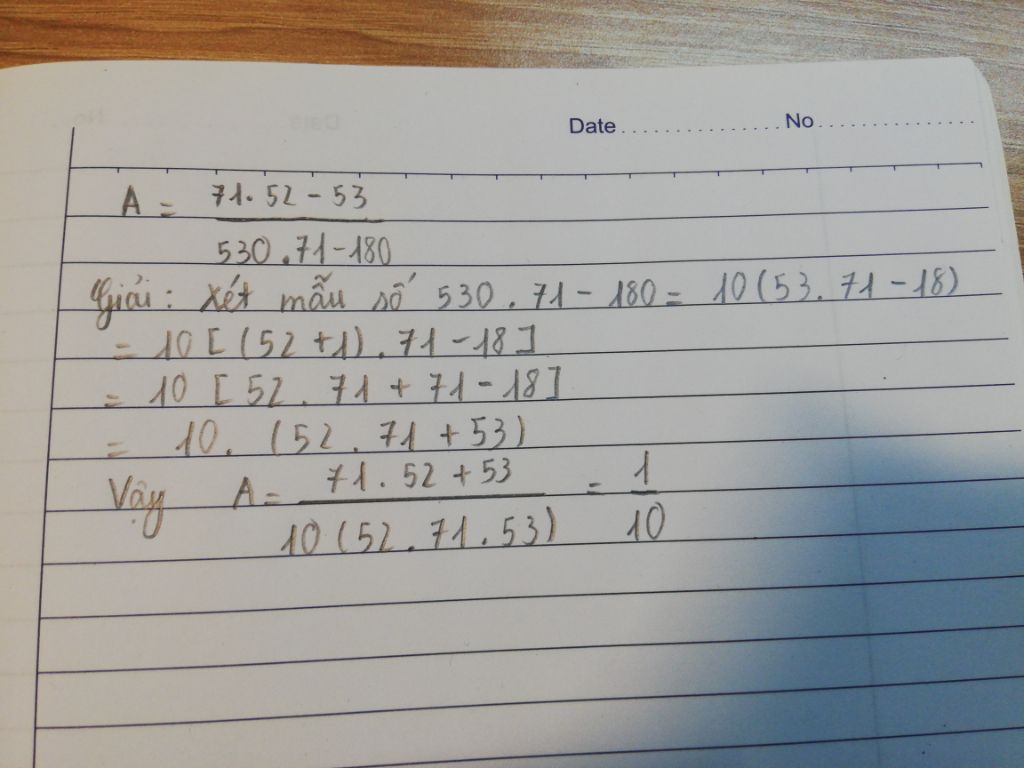 Date ............... No ...............
A = 71.52 - 53
530.71-180
Giải: Xét mẫu số 530.71 - 180 = 10(53.71 - 18)
= 10 [(52+1).71-18]
= 10 [52.71 + 71-18]
= 10. (52.71 + 53)
Vậy A = 71.52 + 53 = 1
10(52.71.53) 10